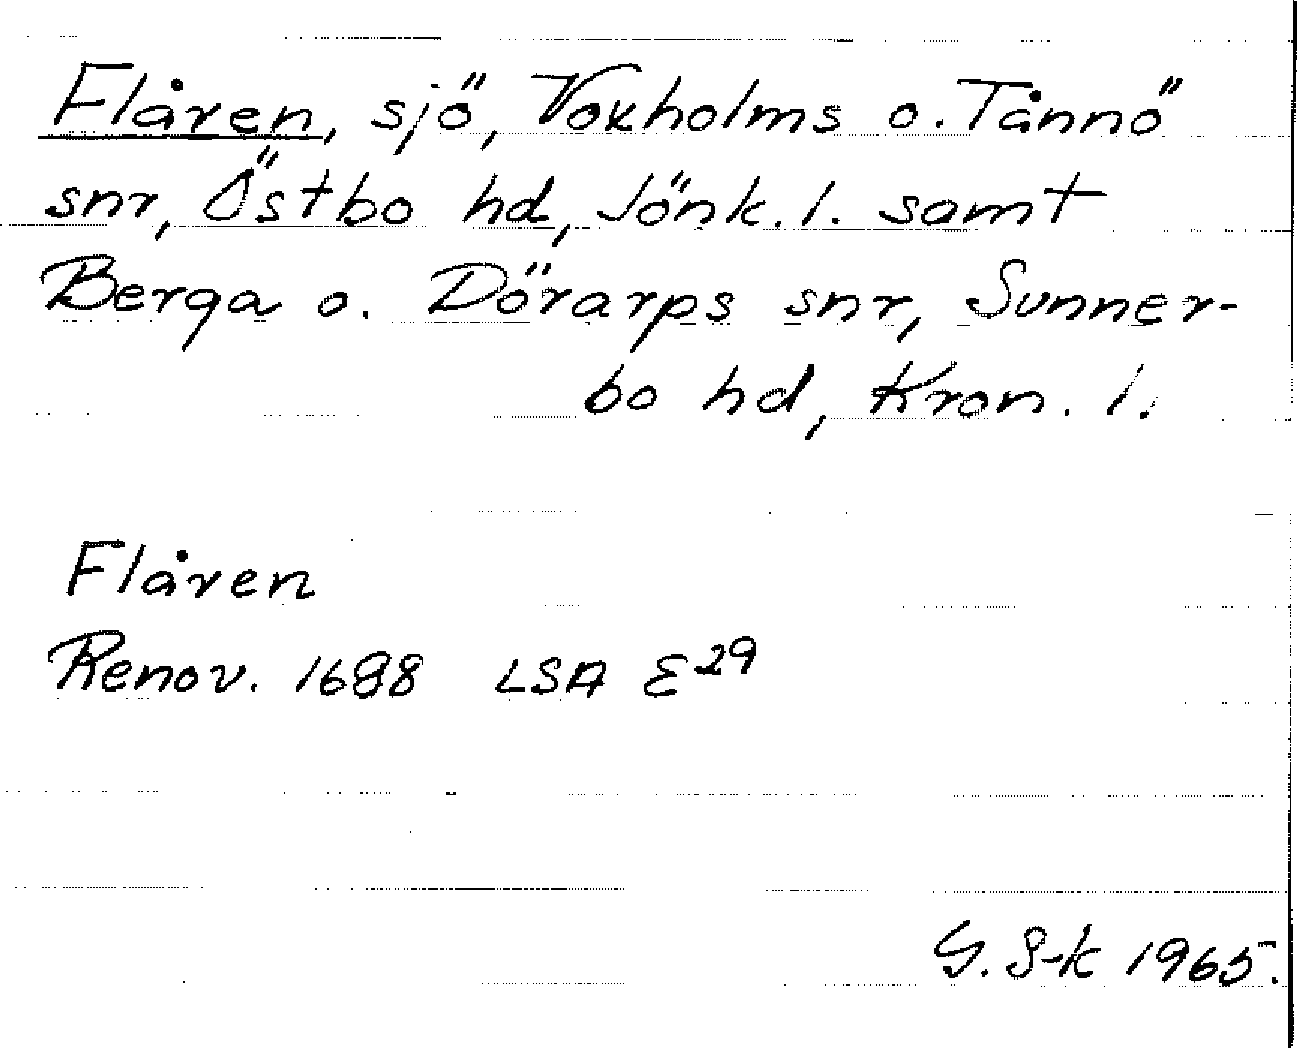 Flåren, sjö, Voxholms o. Tånnö
snr, Östbo hd, Jönk. l. samt
Berga o. Dörarps snr, Sunner-
bo hd, Kron. l.
Flåren
Renov. 1688 LSA E 29
G. S-k 1965.